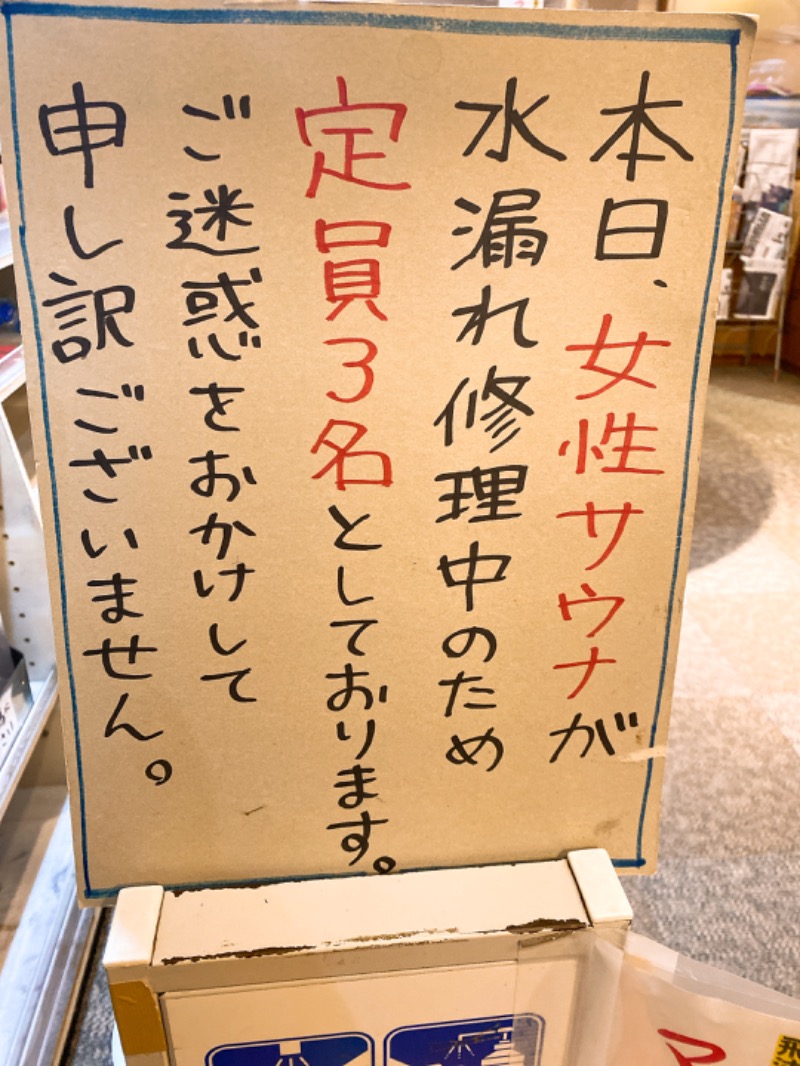 本日、女性サウナが
水漏れ修理中のため
定員3名としております。
ご迷惑をおかけして
申し訳ございません。
マ